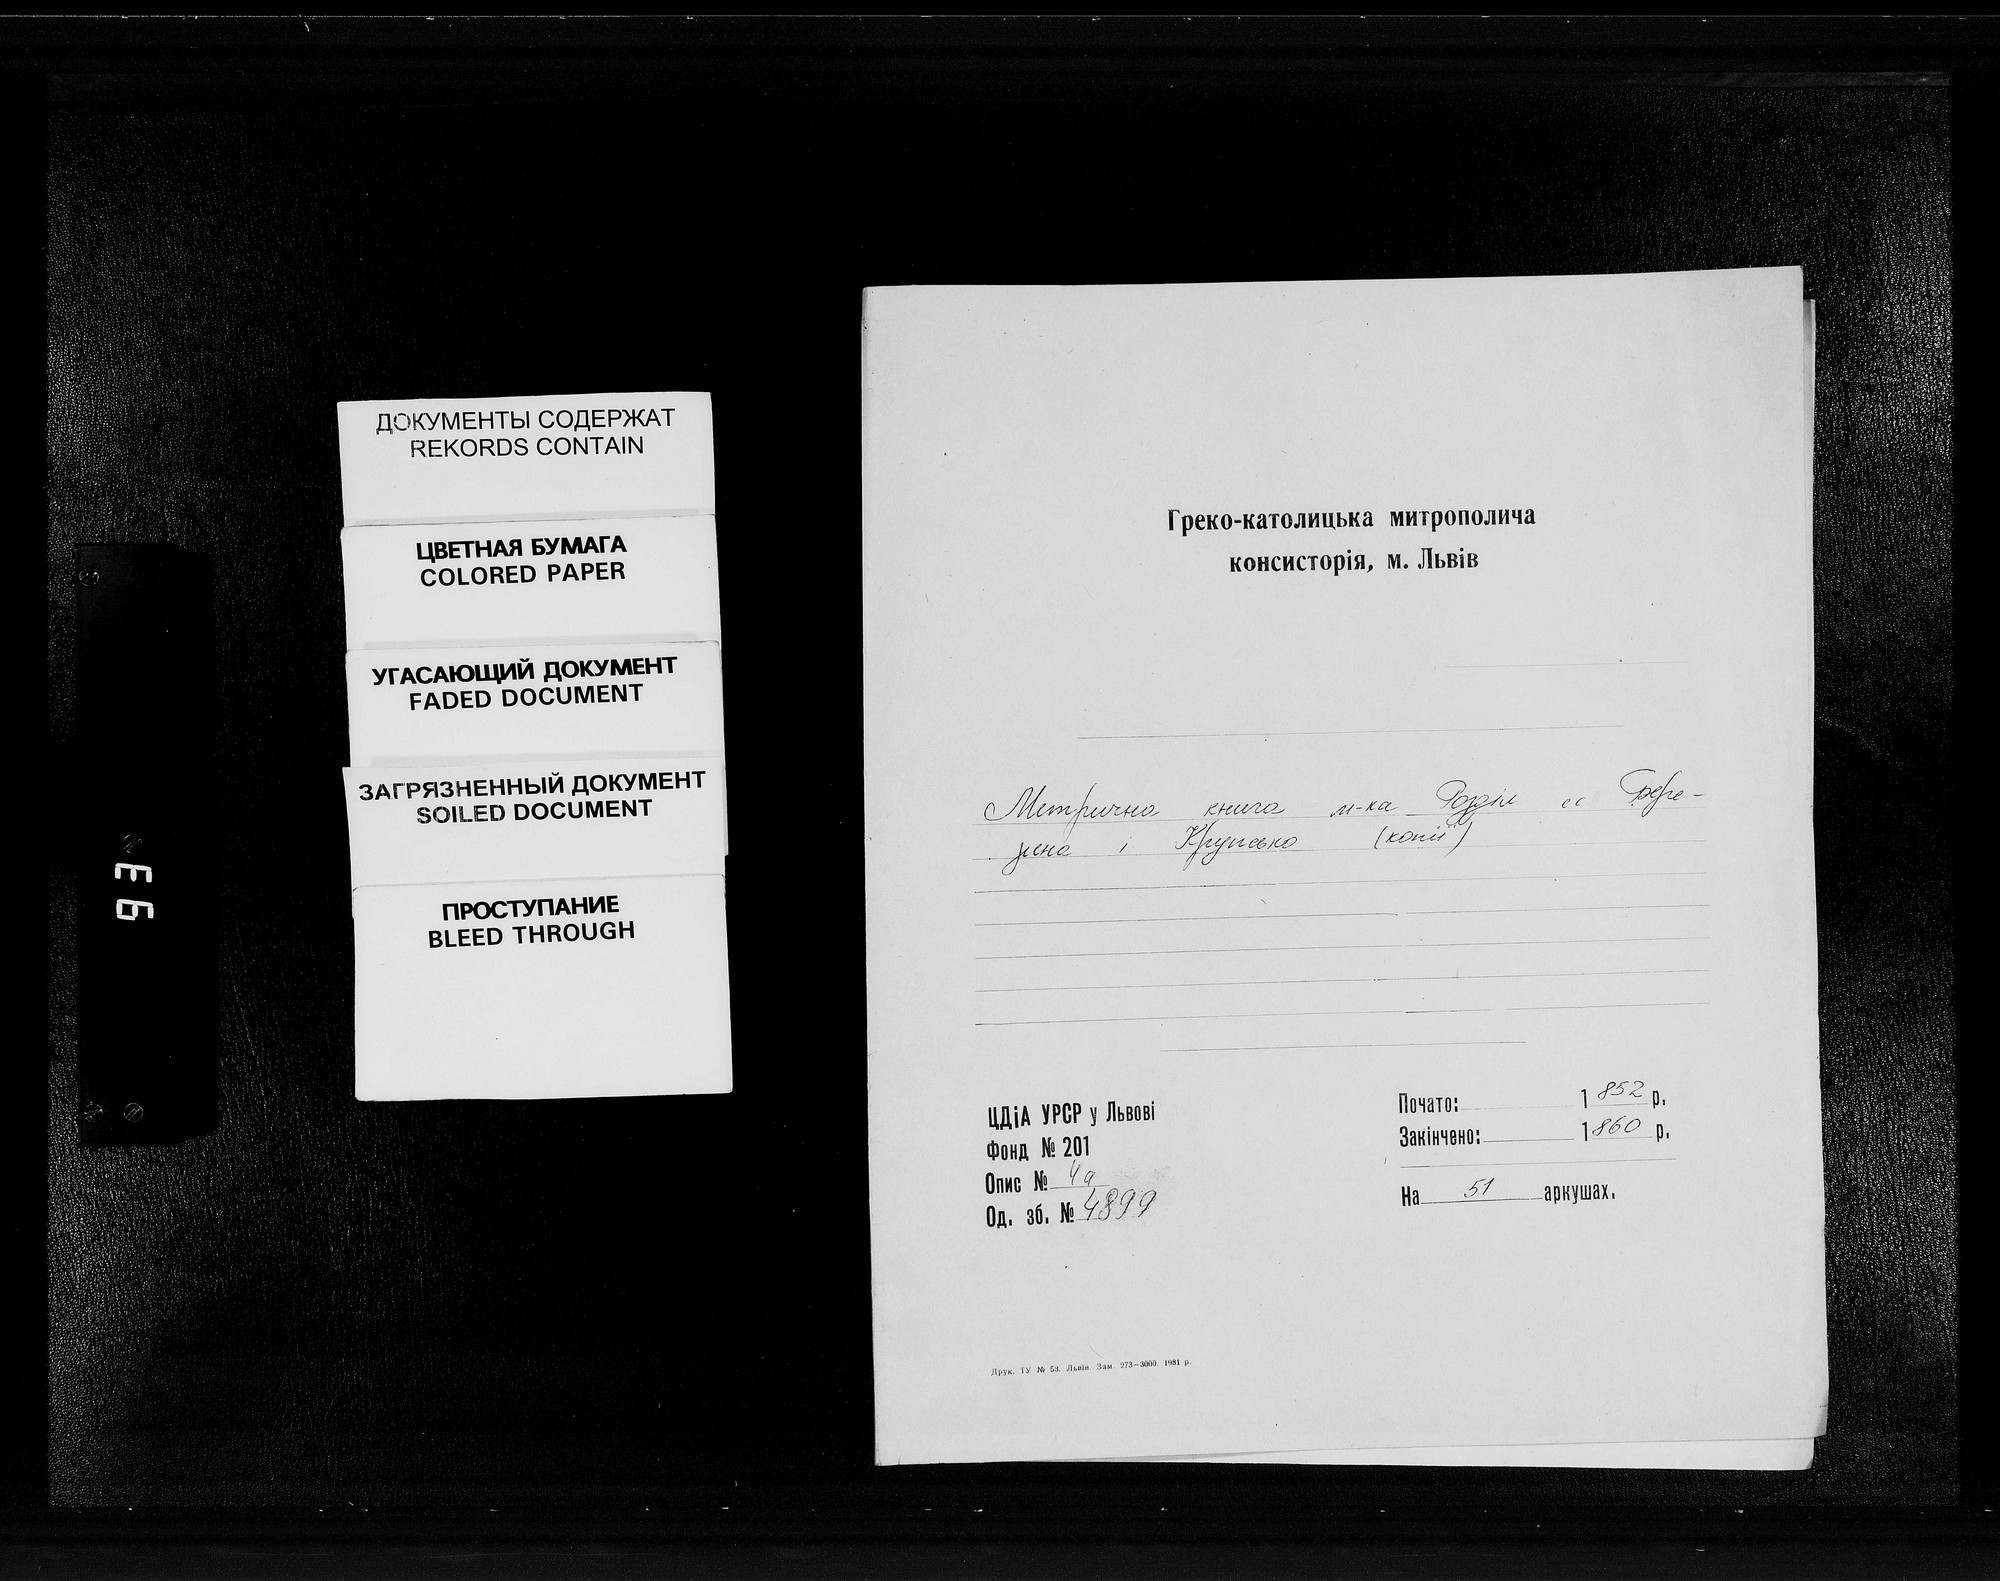 ДОКУМЕНТЫ СОДЕРЖАТ
REKORDS CONTAIN
ЦВЕТНАЯ БУМАГА
COLORED PAPER
УГАСАЮЩИЙ ДОКУМЕНТ
FADED DOCUMENT
ЗАГРЯЗНЕННЫЙ ДОКУМЕНТ
SOILED DOCUMENT
ПРОСТУПАНИЕ
BLEED THROUGH
Греко-католицька митрополича
консисторія, м. Львів
Метрична книга м-ка Розділ
і Крупсько (копії)
ЦДіА УРСР у Львові
Фонд № 201
Опис № 4а
Од. зб. № 4899
Почато: 1852 р.
Закінчено: 1860 р.
На 51 аркушах.
Друк. ТУ № 53. Львів. Зам. 273—3000. 1981 р.